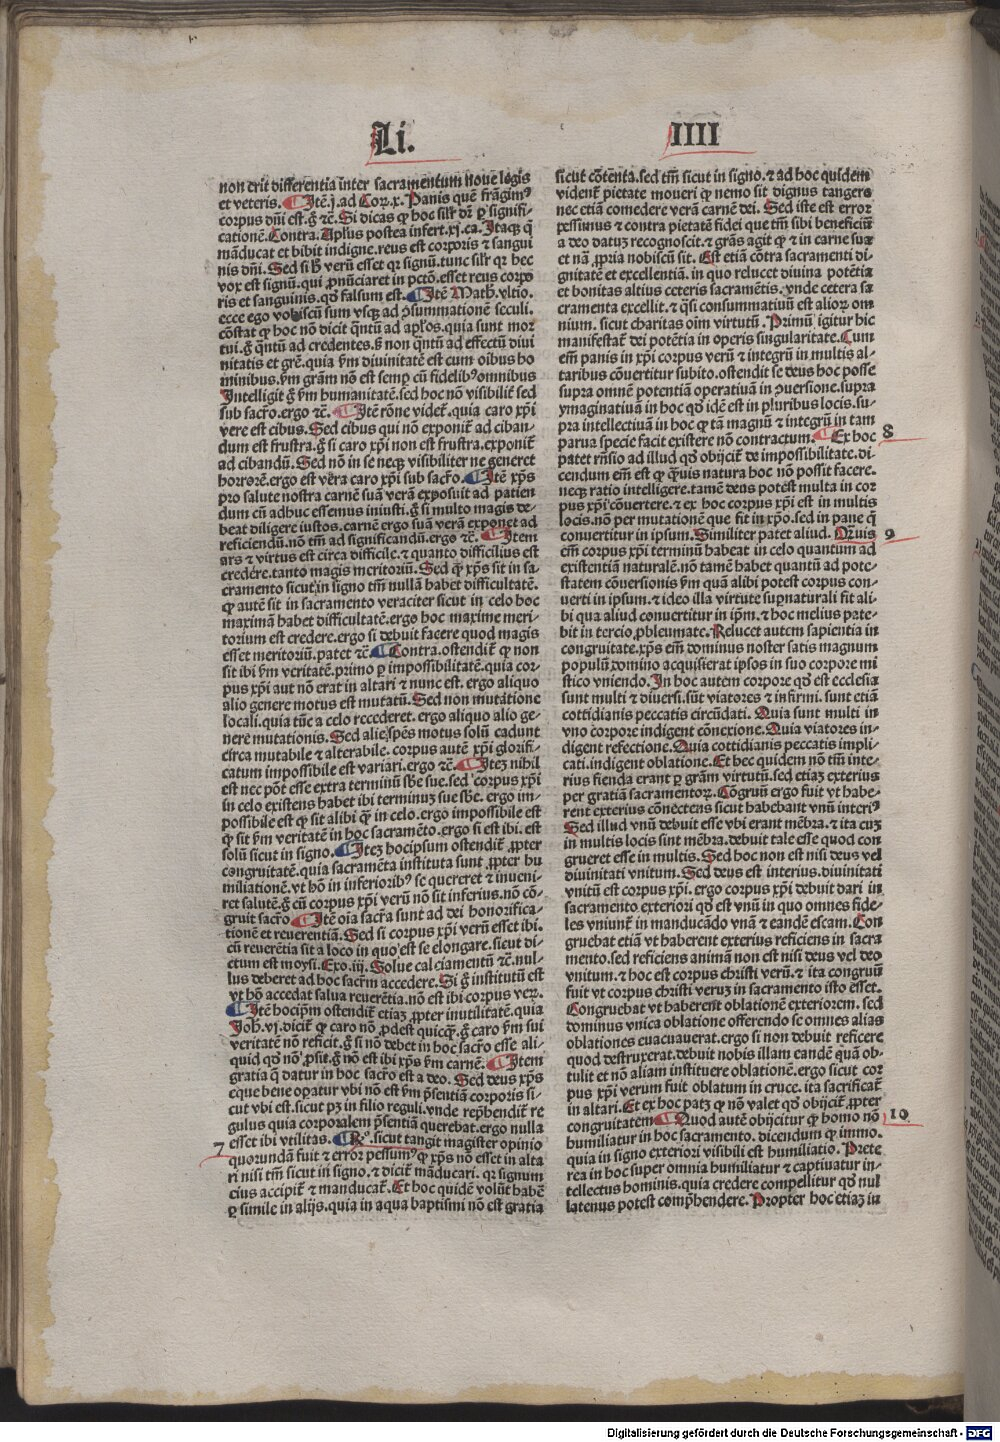 Li.
IIII
non erit differentia inter sacramentum noue legis
et veteris. Itē.j. ad Cor̄.x. Panis quē frāgim⁹
corpus dn̄i est.ḡ ⁊c̄. Si dicas ꝙ hoc silr̄ dr̄ ꝑ signifi-
cationē. Contra. Apl̄us postea infert.xj.ca. Itaqꝫ q̄
māducat et bibit indigne.reus est corporis ⁊ sangui
nis dn̄i. Sed si
vox est signū.qui ꝓnūciaret in pctō.esset reus corpo
ris et sanguinis.qd̄ falsum est. Itē Math̄.vltio.
ecce ego vobiscū sum vsqꝫ ad ꝯsummationē seculi.
cōstat ꝙ hoc nō dicit qntū ad apl̄os.quia sunt mor
tui.ḡ qntū ad credentes.ß non qntū ad effectū diui
nitatis et grē.quia ẜm diuinitatē est cum oībus ho
minibus.ẜm grām nō est semꝑ cū fidelib⁹omnibus
Intelligit̄ ḡ ẜm humanitatē.sed hoc nō visibilit̄ sed
sub sacrō.ergo ⁊c̄. Itē rōne videt̄.quia caro xp̄i
vere est cibus. Sed cibus qui nō exponit̄ ad ciban-
dum est frustra.ḡ si caro xp̄i non est frustra.exponit̄
ad cibandū. Sed nō in se neqꝫ visibiliter ne generet
horrorē.ergo est vera caro xp̄i sub sacrō. Itē xp̄s
pro salute nostra carnē suā verā exposuit ad patien
dum cū adhuc essemus iniusti.ḡ si multo magis de-
beat diligere iustos.carnē ergo suā verā exponet ad
reficiendū.nō tm̄ ad significandū.ergo ⁊c̄. Item
ars ⁊ virtus est circa difficile.⁊ quanto difficilius est
credere.tanto magis meritoriū. Sed ꝙ xp̄s sit in sa-
cramento sicut in signo tm̄ nullā habet difficultatē.
ꝙ autē sit in sacramento veraciter sicut in celo hoc
maximā habet difficultatē.ergo hoc maxime meri-
torium est credere.ergo si debuit facere quod magis
esset meritoriū.patet ⁊c̄ Contra.ostendit̄ ꝙ non
sit ibi ẜm veritatē.primo ꝑ impossibilitatē.quia cor-
pus xp̄i aut nō erat in altari ⁊ nunc est. ergo aliquo
alio genere motus est mutatū. Sed non mutatione
locali.quia tūc a celo recederet. ergo aliquo alio ge-
nere mutationis. Sed alie spēs motus solū cadunt
circa mutabile ⁊ alterabile. corpus autē xp̄i glorifi-
catum impossibile est variari.ergo ⁊c̄. Itez nihil
est nec pōt esse extra terminū sbe sue.sed corpus xp̄i
in celo existens habet ibi terminuz sue sbe. ergo im-
possibile est ꝙ sit alibi q̄ in celo.ergo impossibile est
ꝙ sit ẜm veritatē in hoc sacramēto.ergo si est ibi.est
solū sicut in signo. Itez hocipsum ostendit̄ ꝓpter
congruitatē.quia sacramēta instituta sunt ꝓpter hu
miliationē.vt hō in inferiorib⁹ se quereret ⁊ inueni-
ret salutē.ḡ cū corpus xp̄i verū nō sit inferius.nō cō-
gruit sacrō Itē oīa sacrā sunt ad dei honorifica-
tionē et reuerentiā. Sed si corpus xp̄i verū esset ibi.
cū reuerētia sit a loco in quo est se elongare.sicut di-
ctum est moysi. Exo.iij. Solue calciamentū ⁊c̄.nul-
lus deberet ad hoc sacrm̄ accedere. Si ḡ institutū est
vt hō accedat salua reuerētia.nō est ibi corpus ver̄.
Itē hocip̄m ostendit̄ etiaz ꝓpter inutilitatē.quia
Joh̄.vj.dicit̄ ꝙ caro nō ꝓdest quicq̄.ḡ caro ẜm sui
veritatē nō reficit.ḡ si nō debet in hoc sacrō esse ali-
quid qd̄ nō ꝓsit.ḡ nō est ibi xp̄s ẜm carnē. Item
gratia q̄ datur in hoc sacrō est a deo. Sed deus xp̄s
eque bene oꝑatur vbi nō est ẜm p̄sentiā corporis si-
cut vbi est.sicut pꝫ in filio reguli.vnde rep̄hendit̄ re
gulus quia corporalem p̄sentiā querebat.ergo nulla
esset ibi vtilitas. R̄º.sicut tangit magister opinio
7
quorundā fuit ⁊ error pessim⁹ ꝙ xp̄s nō esset in alta
ri nisi tm̄ sicut in signo.⁊ dicit̄ māducari. qr signum
eius accipit̄ ⁊ manducat̄. Et hoc quidē volūt habē
ꝑ simile in alijs.quia in aqua baptismi nō est gratia
sicut cōtenta.sed tm̄ sicut in signo.⁊ ad hoc quidem
vident̄ pietate moueri ꝙ nemo sit dignus tangere
nec etiā comedere verā carnē dei. Sed iste est error
pessimus ⁊ contra pietatē fidei que tm̄ sibi beneficiū
a deo datuz recognoscit.⁊ grās agit ꝙ ⁊ in carne sua
et nā ꝓpria nobiscū sit. Est etiā cōtra sacramenti di-
gnitatē et excellentiā.in quo relucet diuina potētia
et bonitas altius ceteris sacramētis.vnde cetera sa
cramenta excellit.⁊ q̄si consummatiuū est alior̄ om
nium. sicut charitas oīm virtutū. Primū igitur hic
manifestat̄ dei potētia in operis singularitate. Cum
em̄ panis in xp̄i corpus verū ⁊ integrū in multis al-
taribus cōuertitur subito.ostendit se deus hoc posse
supra omnē potentiā operatiuā in ꝯuersione.supra
ymaginatiuā in hoc qd̄ idē est in pluribus locis.su-
pra intellectiuā in hoc ꝙ tā magnū ⁊ integrū in tam
parua specie facit existere nō contractum. Ex hoc
8
patet rn̄sio ad illud qd̄ obijcit̄ de impossibilitate.di-
cendum em̄ est ꝙ q̄uis natura hoc nō possit facere.
neqꝫ ratio intelligere.tamē deus potest multa in cor
pus xp̄i cōuertere.⁊ ex hoc corpus xp̄i est in multis
locis.nō per mutationē que fit in xp̄o.sed in pane q̄
conuertitur in ipsum. Similiter patet aliud. Q̄uis
9
em̄ corpus xp̄i terminū habeat in celo quantum ad
existentiā naturalē.nō tamē habet quantū ad pote-
statem cōuersionis ẜm quā alibi potest corpus con-
uerti in ipsum.⁊ ideo illa virtute sup̄naturali fit ali-
bi qua aliud conuertitur in ip̄m.⁊ hoc melius pate-
bit in tercio ꝓbleumate. Relucet autem sapientia in
congruitate.xp̄s em̄ dominus noster satis magnum
populū domino acquisierat ipsos in suo corpore mi
stico vniendo. In hoc autem corpore qd̄ est ecclesia
sunt multi ⁊ diuersi.sūt viatores ⁊ infirmi. sunt etiā
cottidianis peccatis circūdati. Quia sunt multi in
vno corpore indigent cōnexione. Quia viatores in-
digent refectione. Quia cottidianis peccatis impli-
cati.indigent oblatione. Et hec quidem nō tm̄ inte-
rius fienda erant ꝑ grām virtutū.sed etiaz exterius
per gratiā sacramentor̄. Cōgruū ergo fuit vt habe-
rent exterius cōnectens sicut habebant vnū interi⁹
Sed illud vnū debuit esse vbi erant mēbra.⁊ ita cuz
in multis locis sint mēbra.debuit tale esse quod con
grueret esse in multis. Sed hoc non est nisi deus vel
diuinitati vnitum. Sed deus est interius.diuinitati
vnitū est corpus xp̄i. ergo corpus xp̄i debuit dari in
sacramento exteriori qd̄ est vnū in quo omnes fide-
les vniunt̄ in manducādo vnā ⁊ eandē escam. Con
gruebat etiā vt haberent exterius reficiens in sacra
mento.sed reficiens animā non est nisi deus vel deo
vnitum.⁊ hoc est corpus christi verū.⁊ ita congruū
fuit vt corpus christi veruz in sacramento isto esset.
Congruebat vt haberent oblationē exteriorem. sed
dominus vnica oblatione offerendo se omnes alias
oblationes euacuauerat.ergo si non debuit reficere
quod destruxerat.debuit nobis illam candē quā ob-
tulit et nō aliam instituere oblationē.ergo sicut cor
pus xp̄i verum fuit oblatum in cruce. ita sacrificat̄
in altari. Et ex hoc patz ꝙ nō valet qd̄ obijcit̄ ꝓpter
congruitatem Quod autē obijcitur ꝙ homo nō
10
humiliatur in hoc sacramento. dicendum ꝙ immo.
quia in signo exteriori visibili est humiliatio. Prete
rea in hoc super omnia humiliatur ⁊ captiuatur in-
tellectus hominis.quia credere compellitur qd̄ nul
latenus potest comp̄hendere. Propter hoc etiaz in
Digitalisierung gefördert durch die Deutsche Forschungsgemeinschaft - DFG